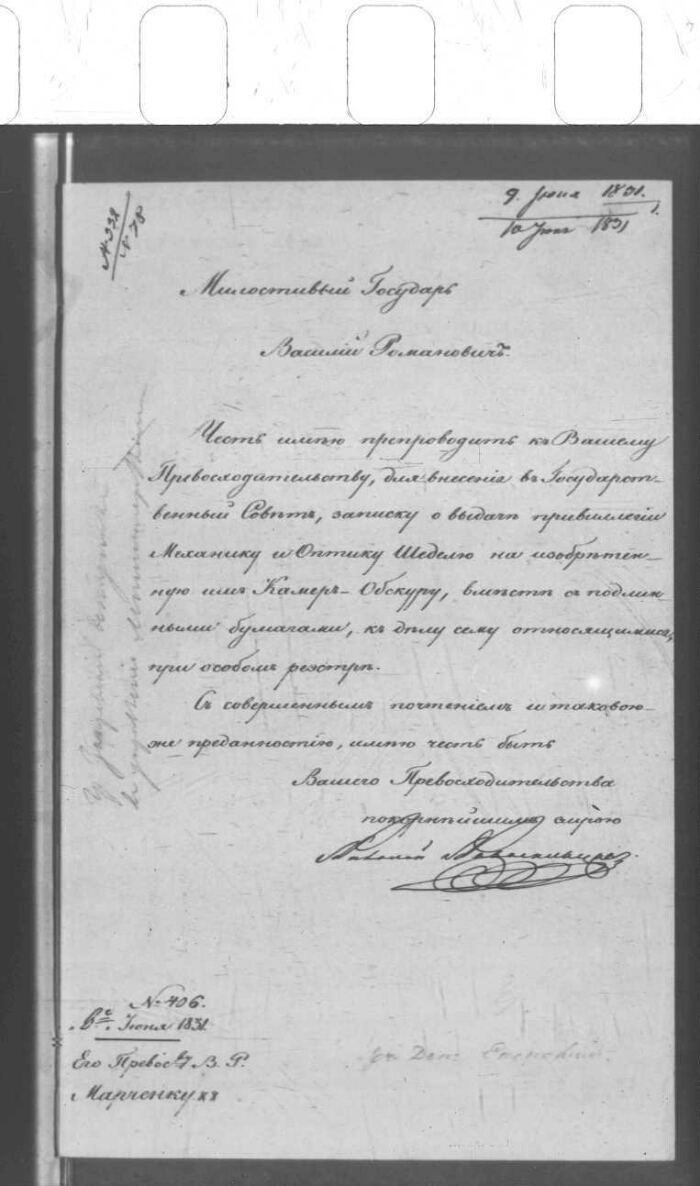 № 338
№ 78
9. Июня 1831.
10 Июня 1831
Милостивый Государь
Василій Романовичъ.
Честь имѣю препроводить къ Вашему
Превосходительству, для внесенія въ Государст-
венный Совѣтъ, записку о выдачѣ привиллегіи
Механику и Оптику Шеделю на изобрѣтен-
ную имъ Камеръ-Обскуру, вмѣстѣ съ подлин-
ными бумагами, къ дѣлу сему относящимися,
при особомъ реэстрѣ.
Съ совершеннымъ почтеніемъ и таковою-
же преданностію, имѣю честь быть
Вашего Превосходительства
покорнѣйшимъ слугою
№ 406.
Июня 1831.
Его Превосх. В. Р.
Марченку